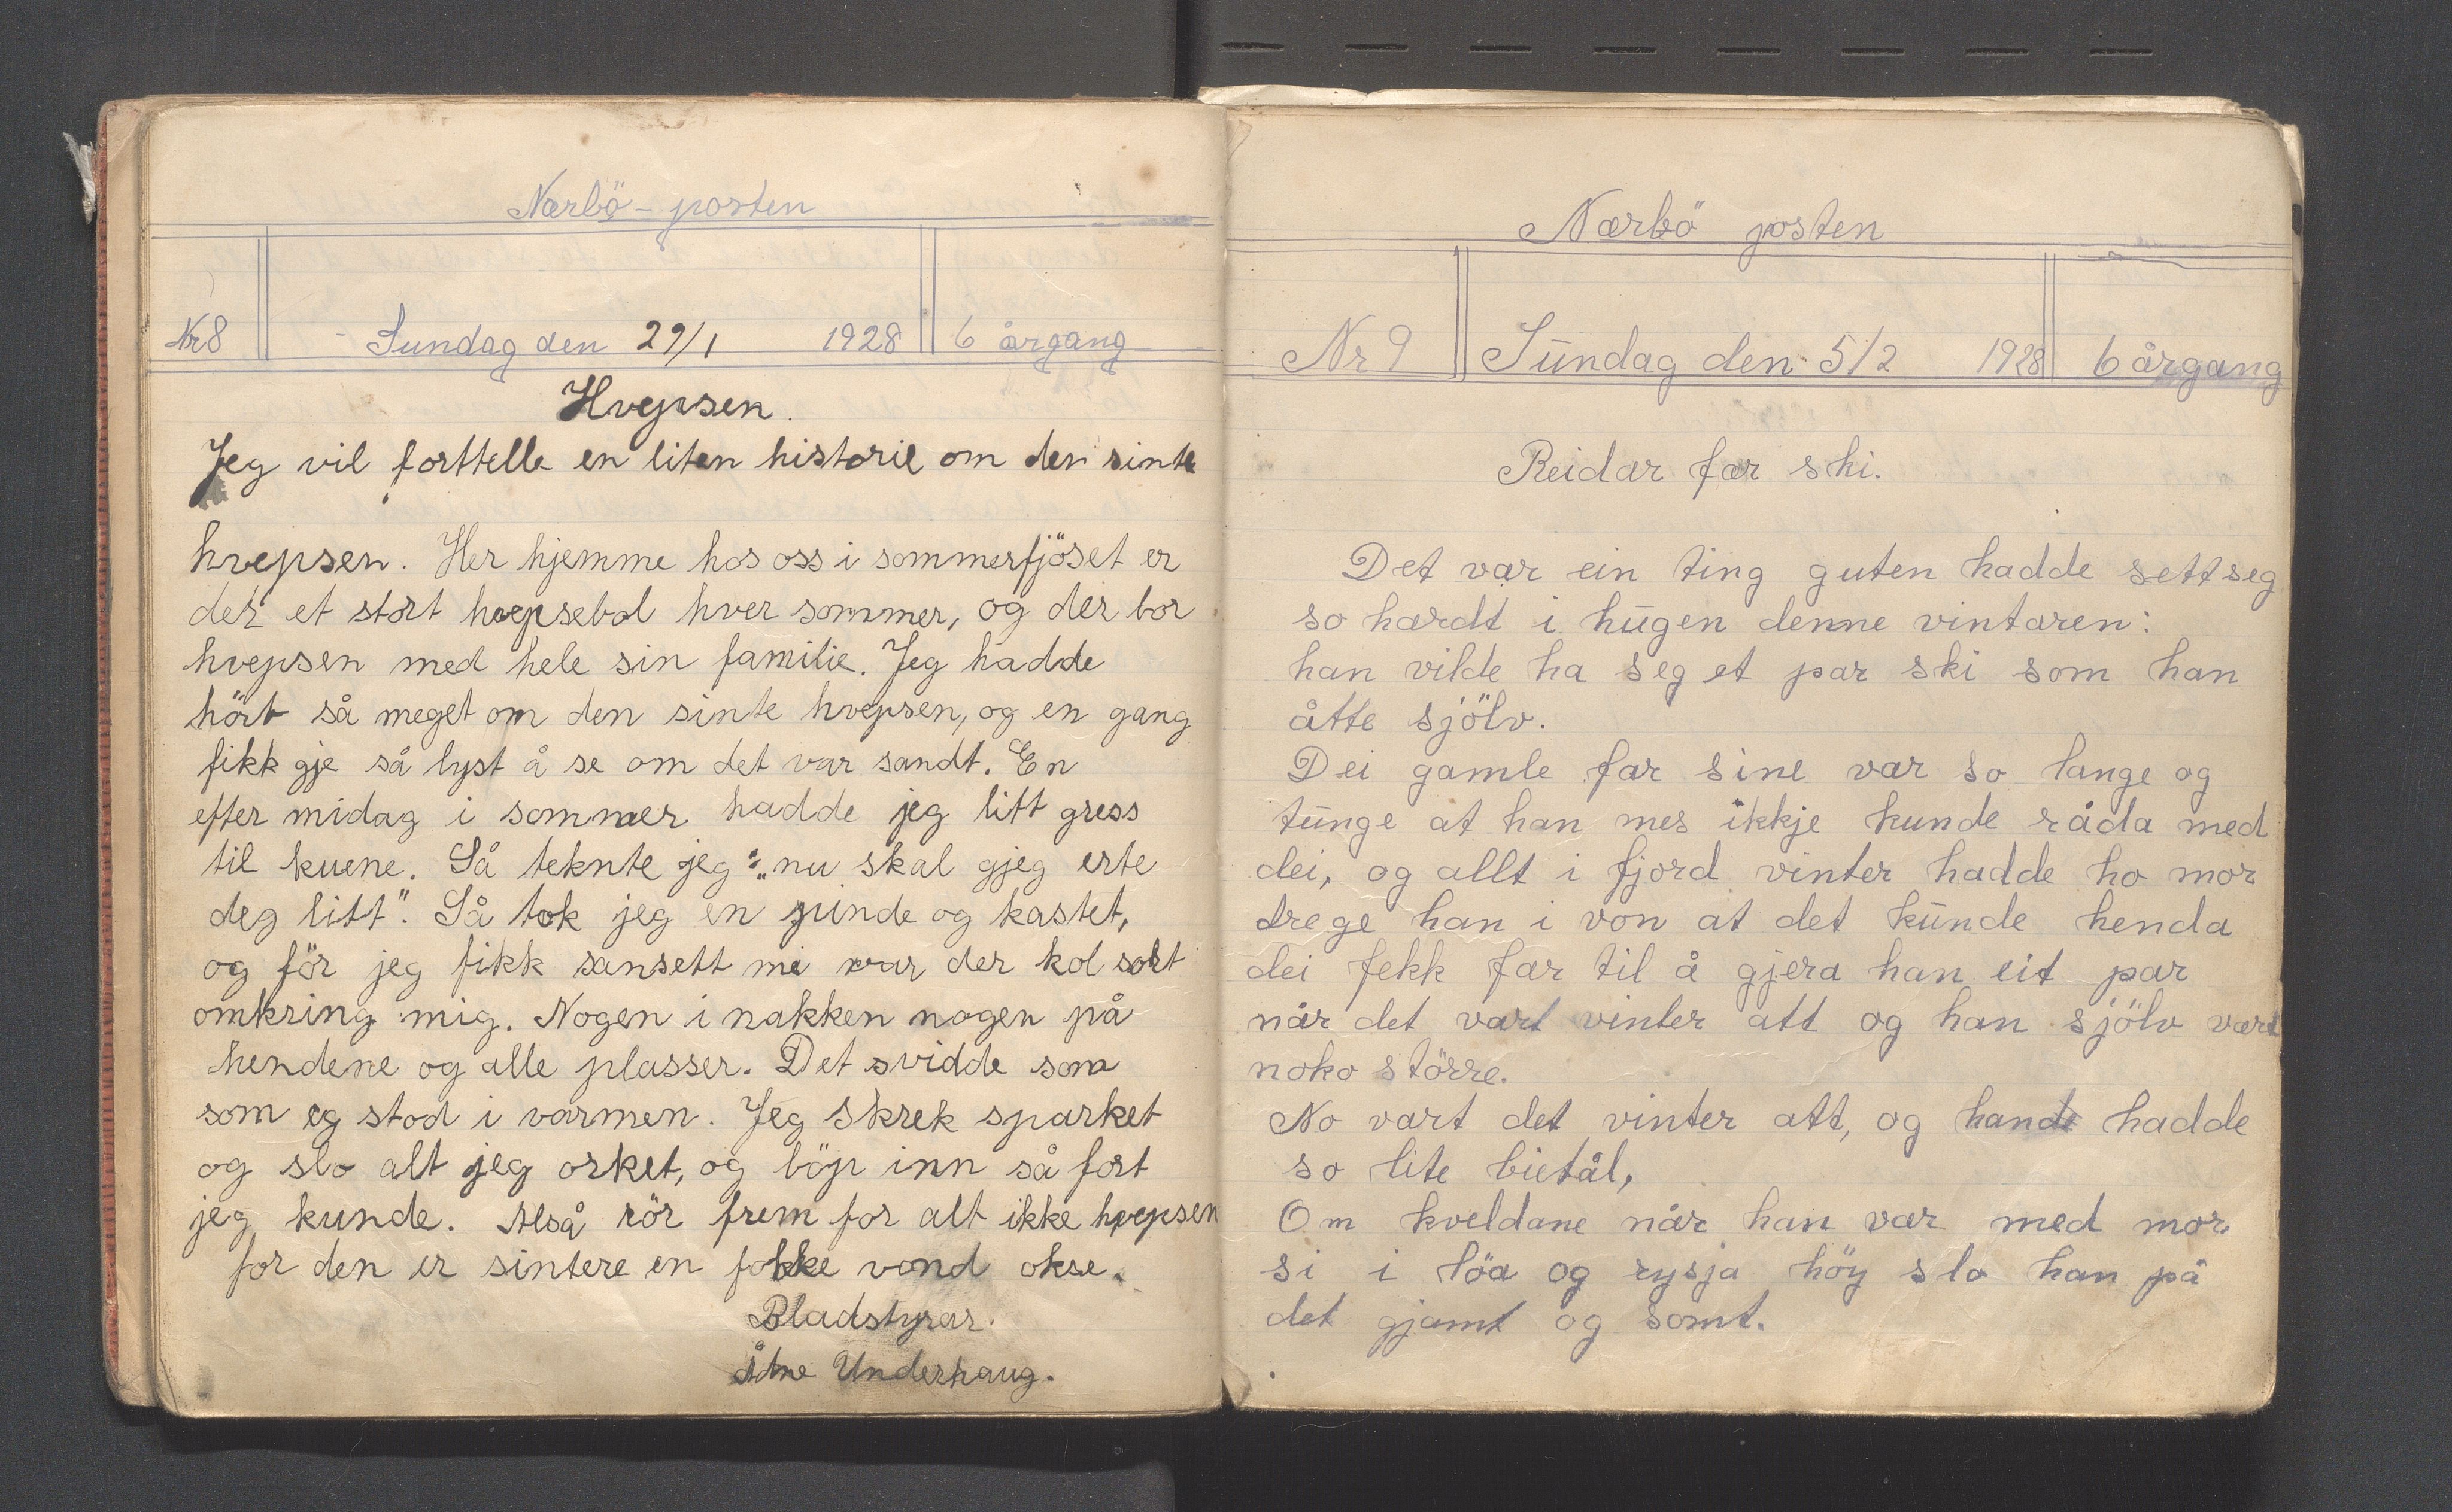 Nærbö-posten
Nr 8 Sundag den 29/1 1928 6 årgang
Hvepsen.
Jeg vil forttelle en liten historie om den sinte
hvepsen. Her hjemme hos oss i sommerfjöset er
der et stort hvepsebol hver sommer, og der bor
hvepsen med hele sin familie. Jeg hadde
hört så meget om den sinte hvepsen, og en gang
fikk gje så lyst å se om det var sandt. En
efter midag i sommer hadde jeg litt gress
til kuene. Så teknte jeg: „nu skal gjeg erte
deg litt". Så tok jeg en pinde og kastet,
og för jeg fikk sansett mi var der kol sort
omkring mig. Nogen i nakken nogen på
hendene og alle plasser. Det svidde som
som eg stod i varmen. Jeg skrek sparket
og slo alt jeg orket, og löp inn så fort
jeg kunde. Alså rör frem for alt ikke hvepsen
for den er sintere en folke vond okse.
Bladstyrar.
Åtne Underhaug.
Nærbö posten
Nr 9 Sundag den 5/2 1928 6 årgang
Reidar fær ski.
Det var ein ting guten hadde sett seg
so hardt i hugen denne vintaren:
han vilde ha seg et par ski som han
åtte sjölv.
Dei gamle far sine var so lange og
tunge at han mes ikkje kunde råda med
dei, og allt i fjord vinter hadde ho mor
drege han i von at det kunde henda
dei fekk far til å gjera han eit par
når det vart vinter att og han sjölv vart
noko större.
No vart det vinter att, og hande hadde
so lite bietål,
Om kveldane når han var med mor
si i löa og rysja höy slo han på
det gjamt og somt.